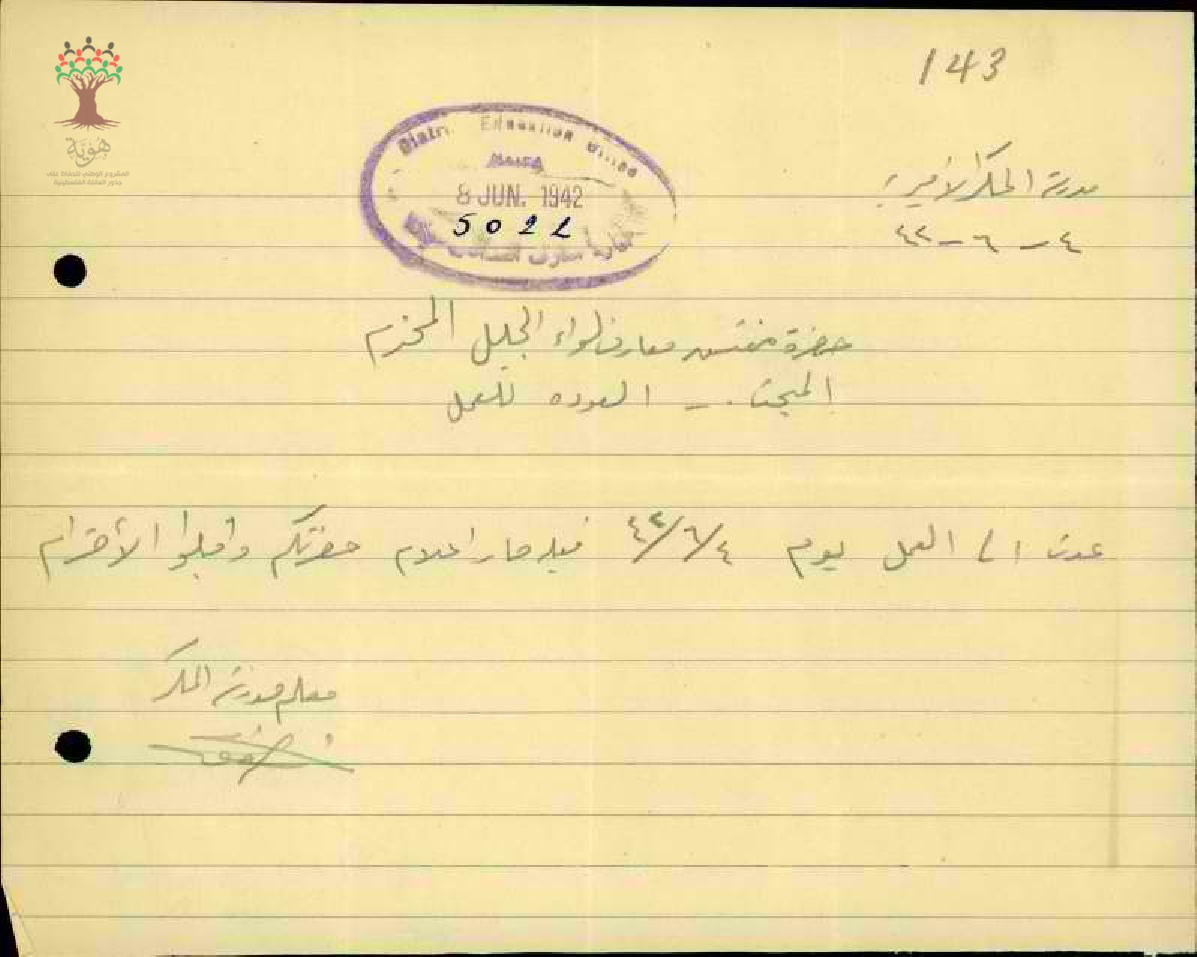 143
مدرسة المكر الأميرية
٤ - ٦ - ٤٢
District Education Office
8 JUN. 1942
5022
حضرة مفتش معارف لواء الجليل المحترم
المبحث . - العوده للعمل
عدت الى العمل يوم ٤/٦/٤٢ فيه صار اعلام حضرتكم واقبلوا الأحترام
معلم مدرسة المكر
هوية
المشروع الوطني للحفاظ على
جذور العائلة الفلسطينية